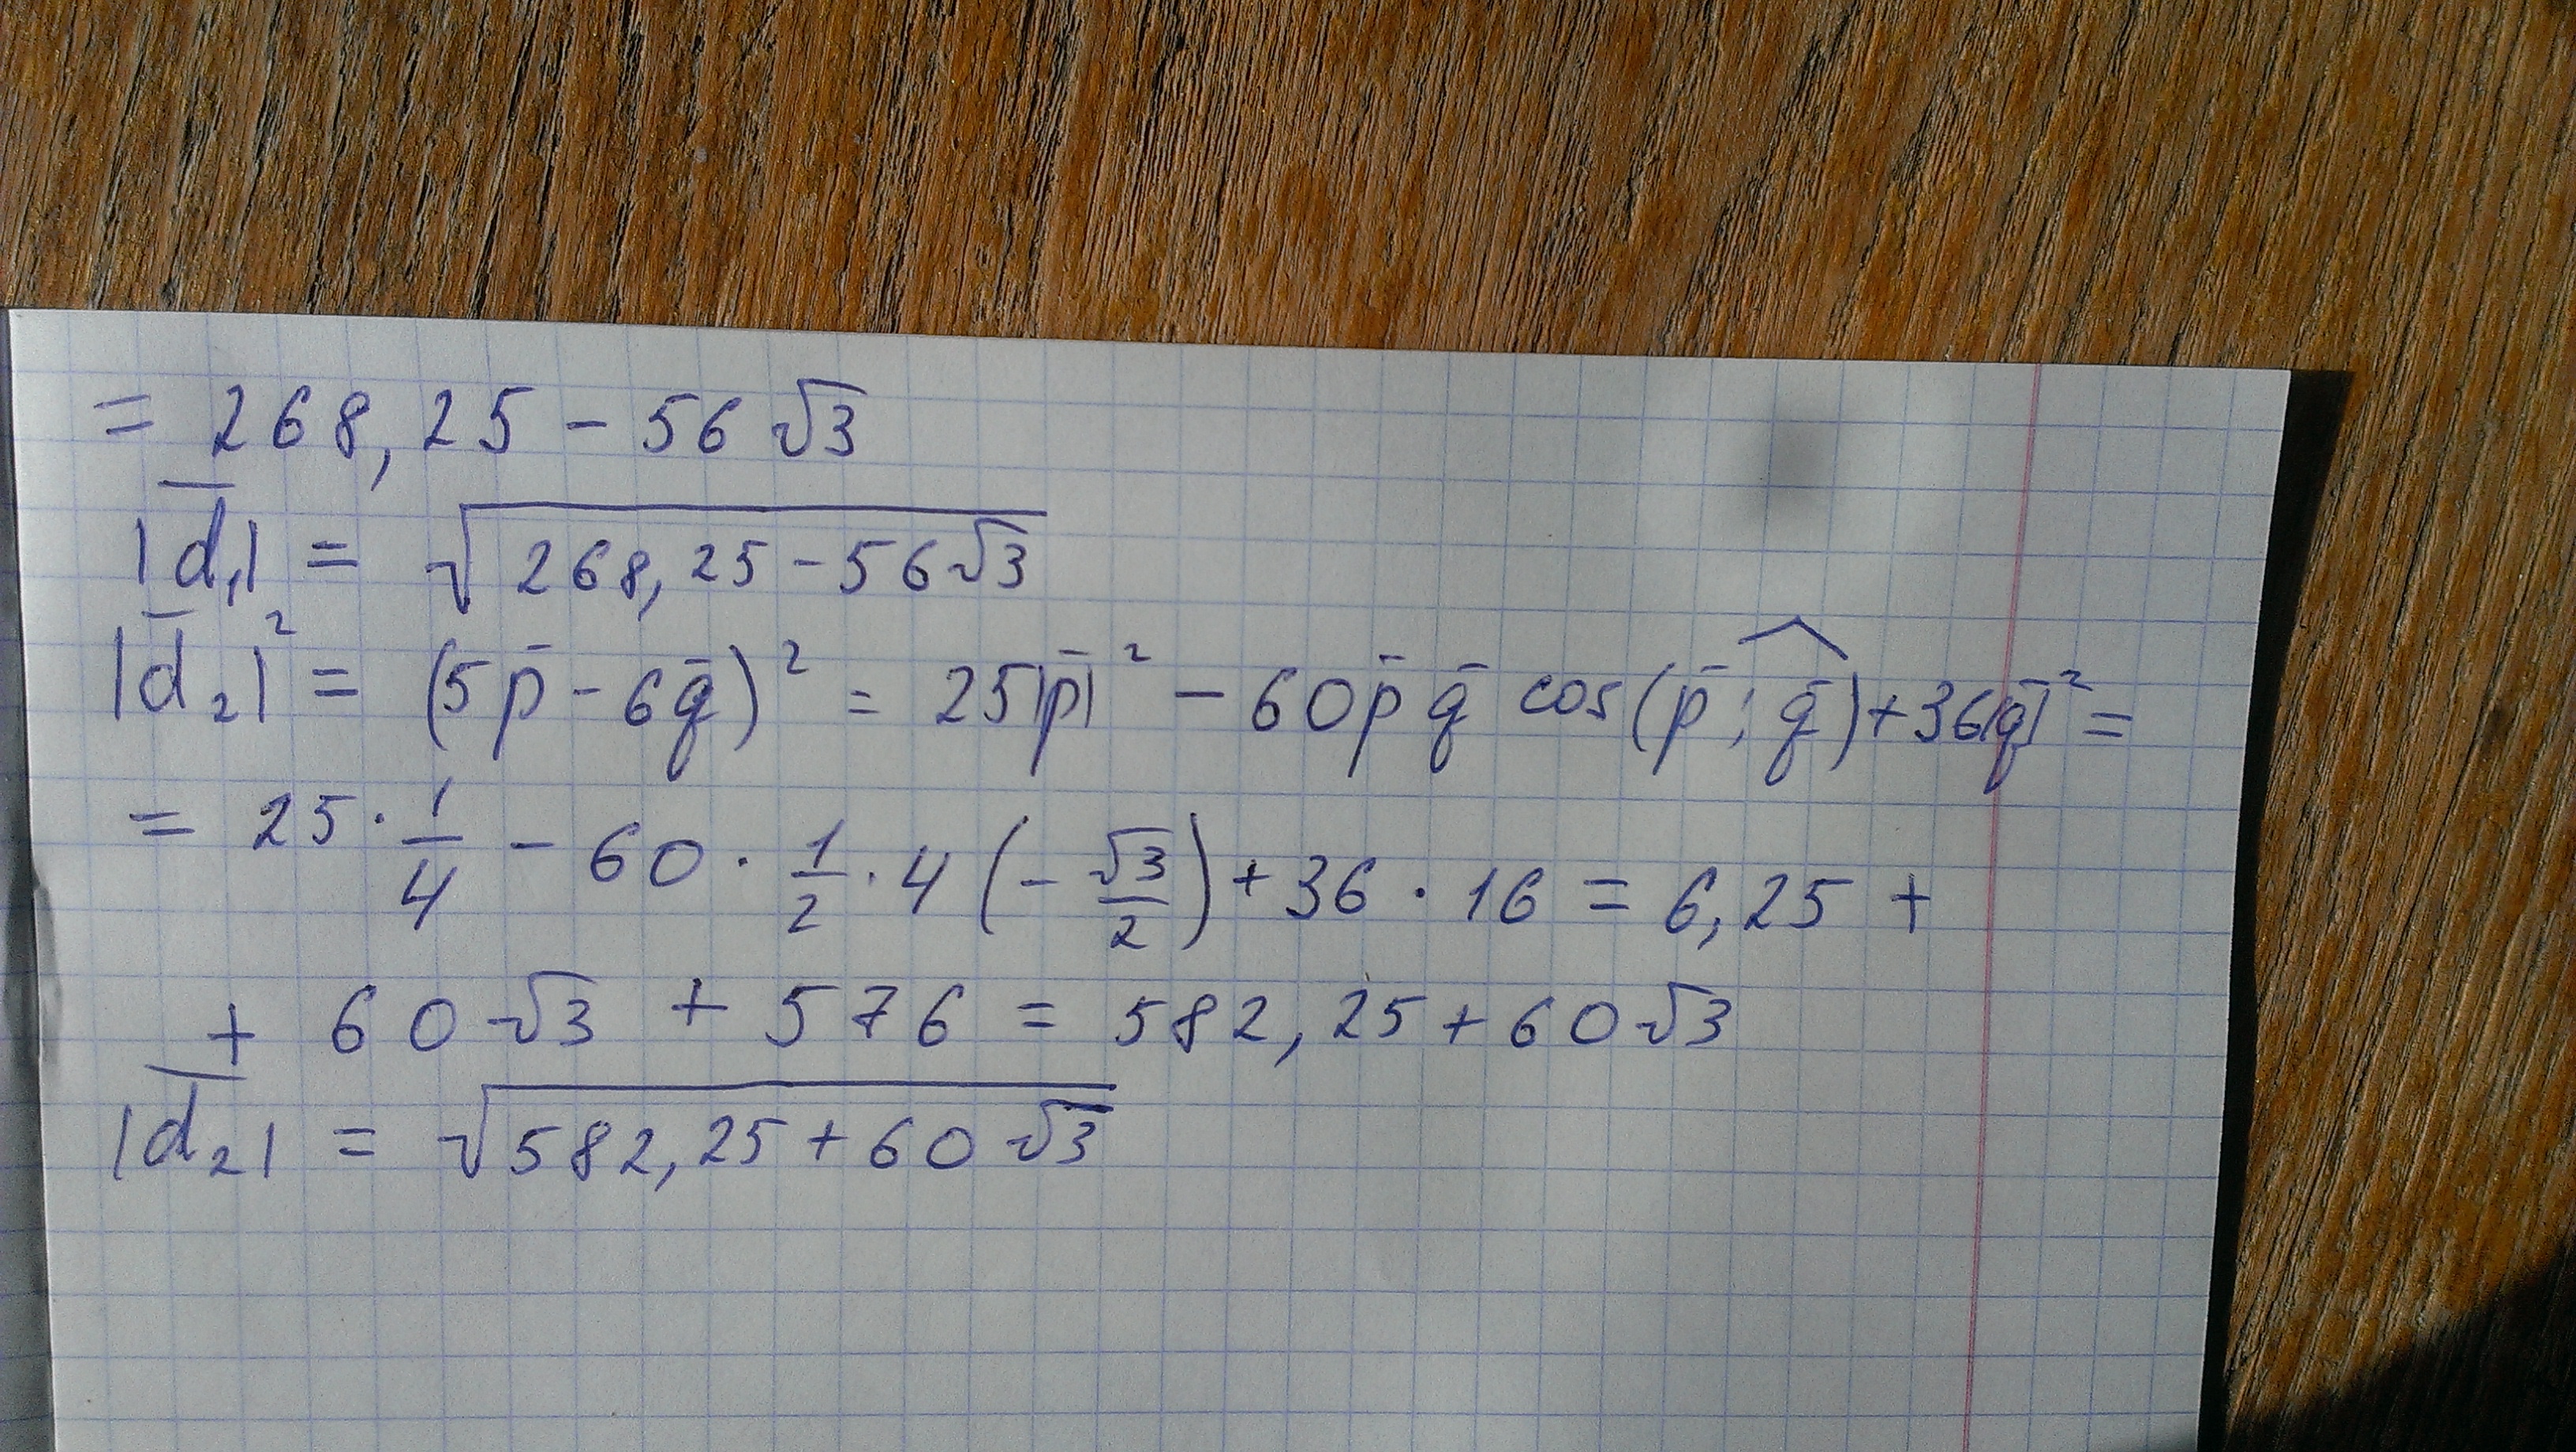 = 268,25 - 56√3
|d̅₁| = √(268,25 - 56√3)
|d̅₂|² = (5p̅ - 6q̅)² = 25|p̅|² - 60p̅ q̅ cos(p̅ ; q̅) + 36|q̅|² =
= 25 · 1/4 - 60 · 1/2 · 4 (- √3/2) + 36 · 16 = 6,25 +
+ 60√3 + 576 = 582,25 + 60√3
|d̅₂| = √(582,25 + 60√3)